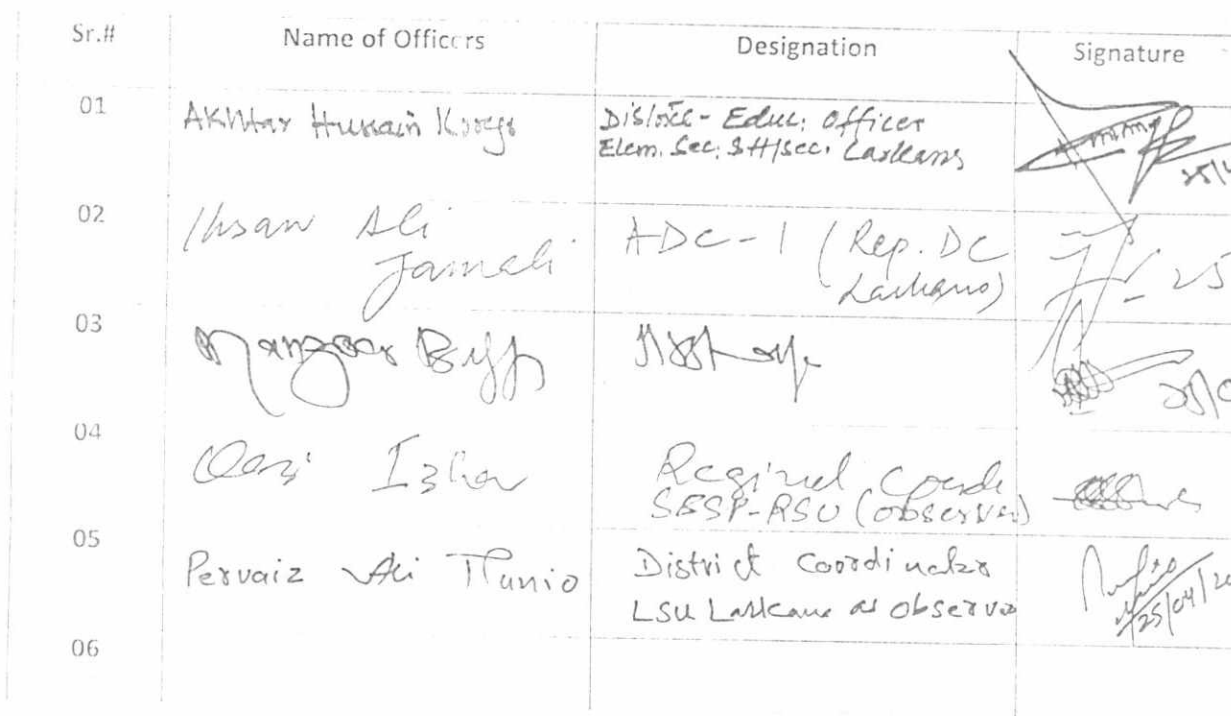 Sr.# Name of Officers Designation Signature
01 Akhtar Hussain District - Educ: Officer
Elem. Sec: & H/Sec: Larkana
02 Ihsan Ali ADC-1 (Rep. DC
Jamali Larkana) 25
03 Manzoor
04 Qazi Izhar Reginal Coordi
SESP-RSU (observer)
05 Pervaiz Ali Thunio District Coordinator
LSU Larkana as observer 25/04/20
06